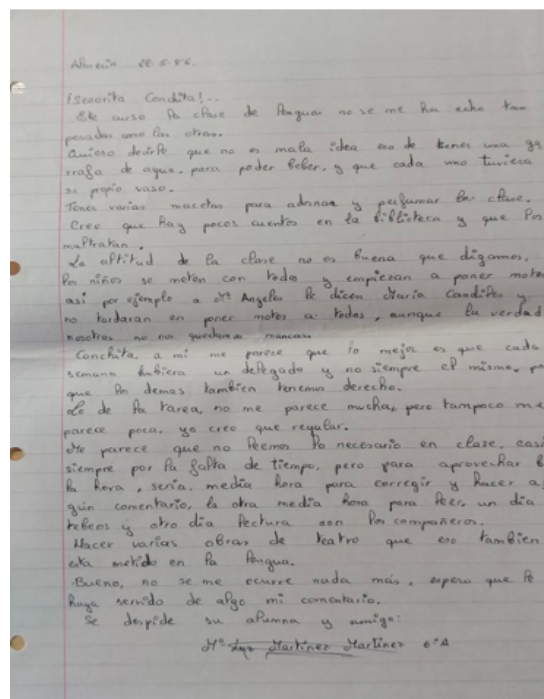 Almería 28.5.86.
¡Senorita Conchita!..
Este curso la clase de lengua no se me ha echo tan
penadas como las otras.
Quiero decirle que no es mala idea eso de tener una ga
rrafa de agua, para poder beber, y que cada uno tuviera
su propio vaso.
Tener varias macetas para adornar y perfumar la clase.
Creo que hay pocos cuentos en la biblioteca y que los
maltratan.
La altitud de la clase no es buena que digamos,
los niños se meten con todos y empiezan a poner motes
asi por ejemplo a Mª Angeles le dicen Maria Candiles y
no tardaran en poner motes a todas, aunque la verdad
nosotras no nos quedamos mancas.
Conchita, a mi me parece que lo mejor es que cada
semana hubiera un delegado y no siempre el mismo, po
que los demas tambien tenemos derecho.
Lo de la tarea, no me parece mucha, pero tampoco me
parece poca, yo creo que regular.
Me parece que no leemos lo necesario en clase, casi
siempre por la falta de tiempo, pero para aprovechar b
la hora, seria, media hora para corregir y hacer al
gún comentario, la otra media hora para leer, un dia
tebeos y otro dia lectura con los compañeros.
Hacer varias obras de teatro que eso tambien
esta metido en la lengua.
Bueno, no se me ocurre nada más, espero que le
haya servido de algo mi comentario.
Se despide su alumna y amiga:
Mª Luz Martinez Martinez 6ºA